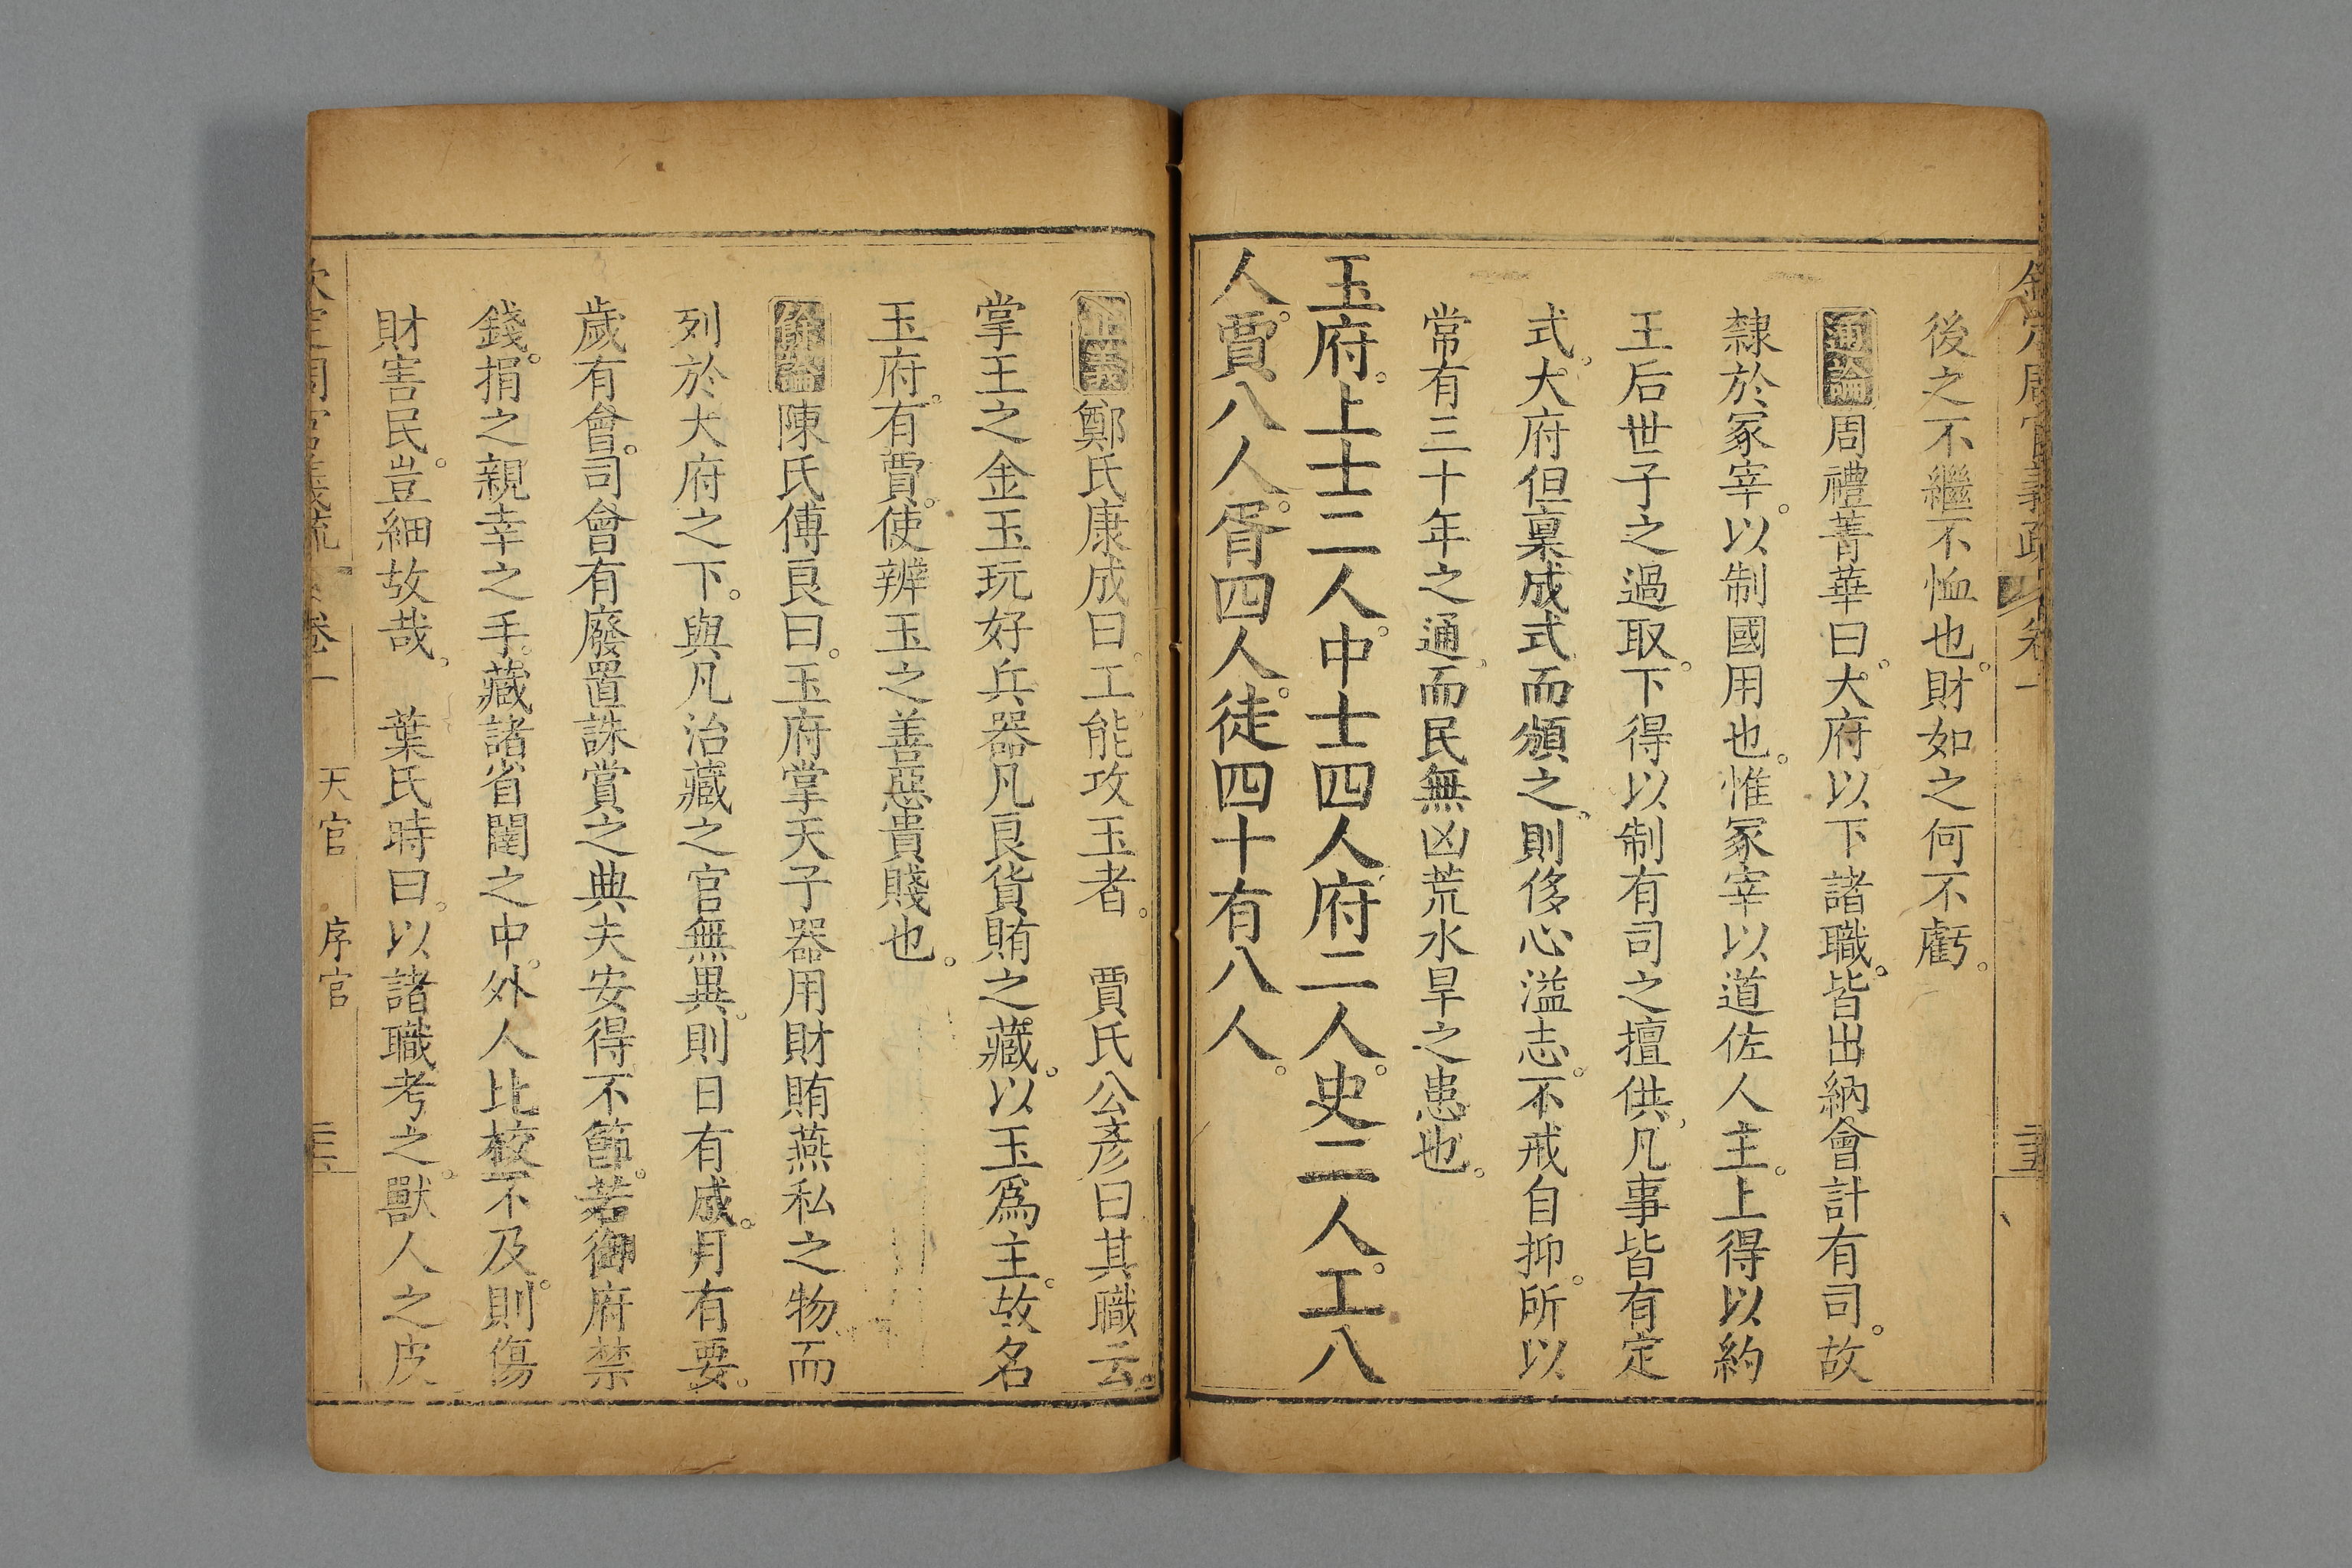 欽定周官義疏 卷一
後之不繼不恤也。財如之何不虧。
通論 周禮菁華曰。大府以下諸職。皆出納會計有司。故
隸於冢宰。以制國用也。惟冢宰以道佐人主。上得以約
王后世子之過取。下得以制有司之擅供。凡事皆有定
式。大府但稟成式而頒之。則侈心溢志。不戒自抑。所以
常有三十年之通。而民無凶荒水旱之患也。
玉府。上士二人。中士四人。府二人。史二人。工八
人。賈八人。胥四人。徒四十有八人。
正義 鄭氏康成曰。工能攻玉者。 賈氏公彥曰其職云。
掌王之金玉玩好兵器凡良貨賄之藏。以玉爲主。故名
玉府。有賈。使辨玉之善惡貴賤也。
餘論 陳氏傅良曰。玉府掌天子器用財賄燕私之物而
列於大府之下。與凡治藏之官無異。則日有成。月有要。
歲有會。司會有廢置誅賞之典夫安得不節。若御府禁
錢。捐之親幸之手。藏諸省闥之中。外人比校不及。則傷
財害民。豈細故哉。 葉氏時曰。以諸職考之。獸人之皮
欽定周官義疏 卷一 天官 序官